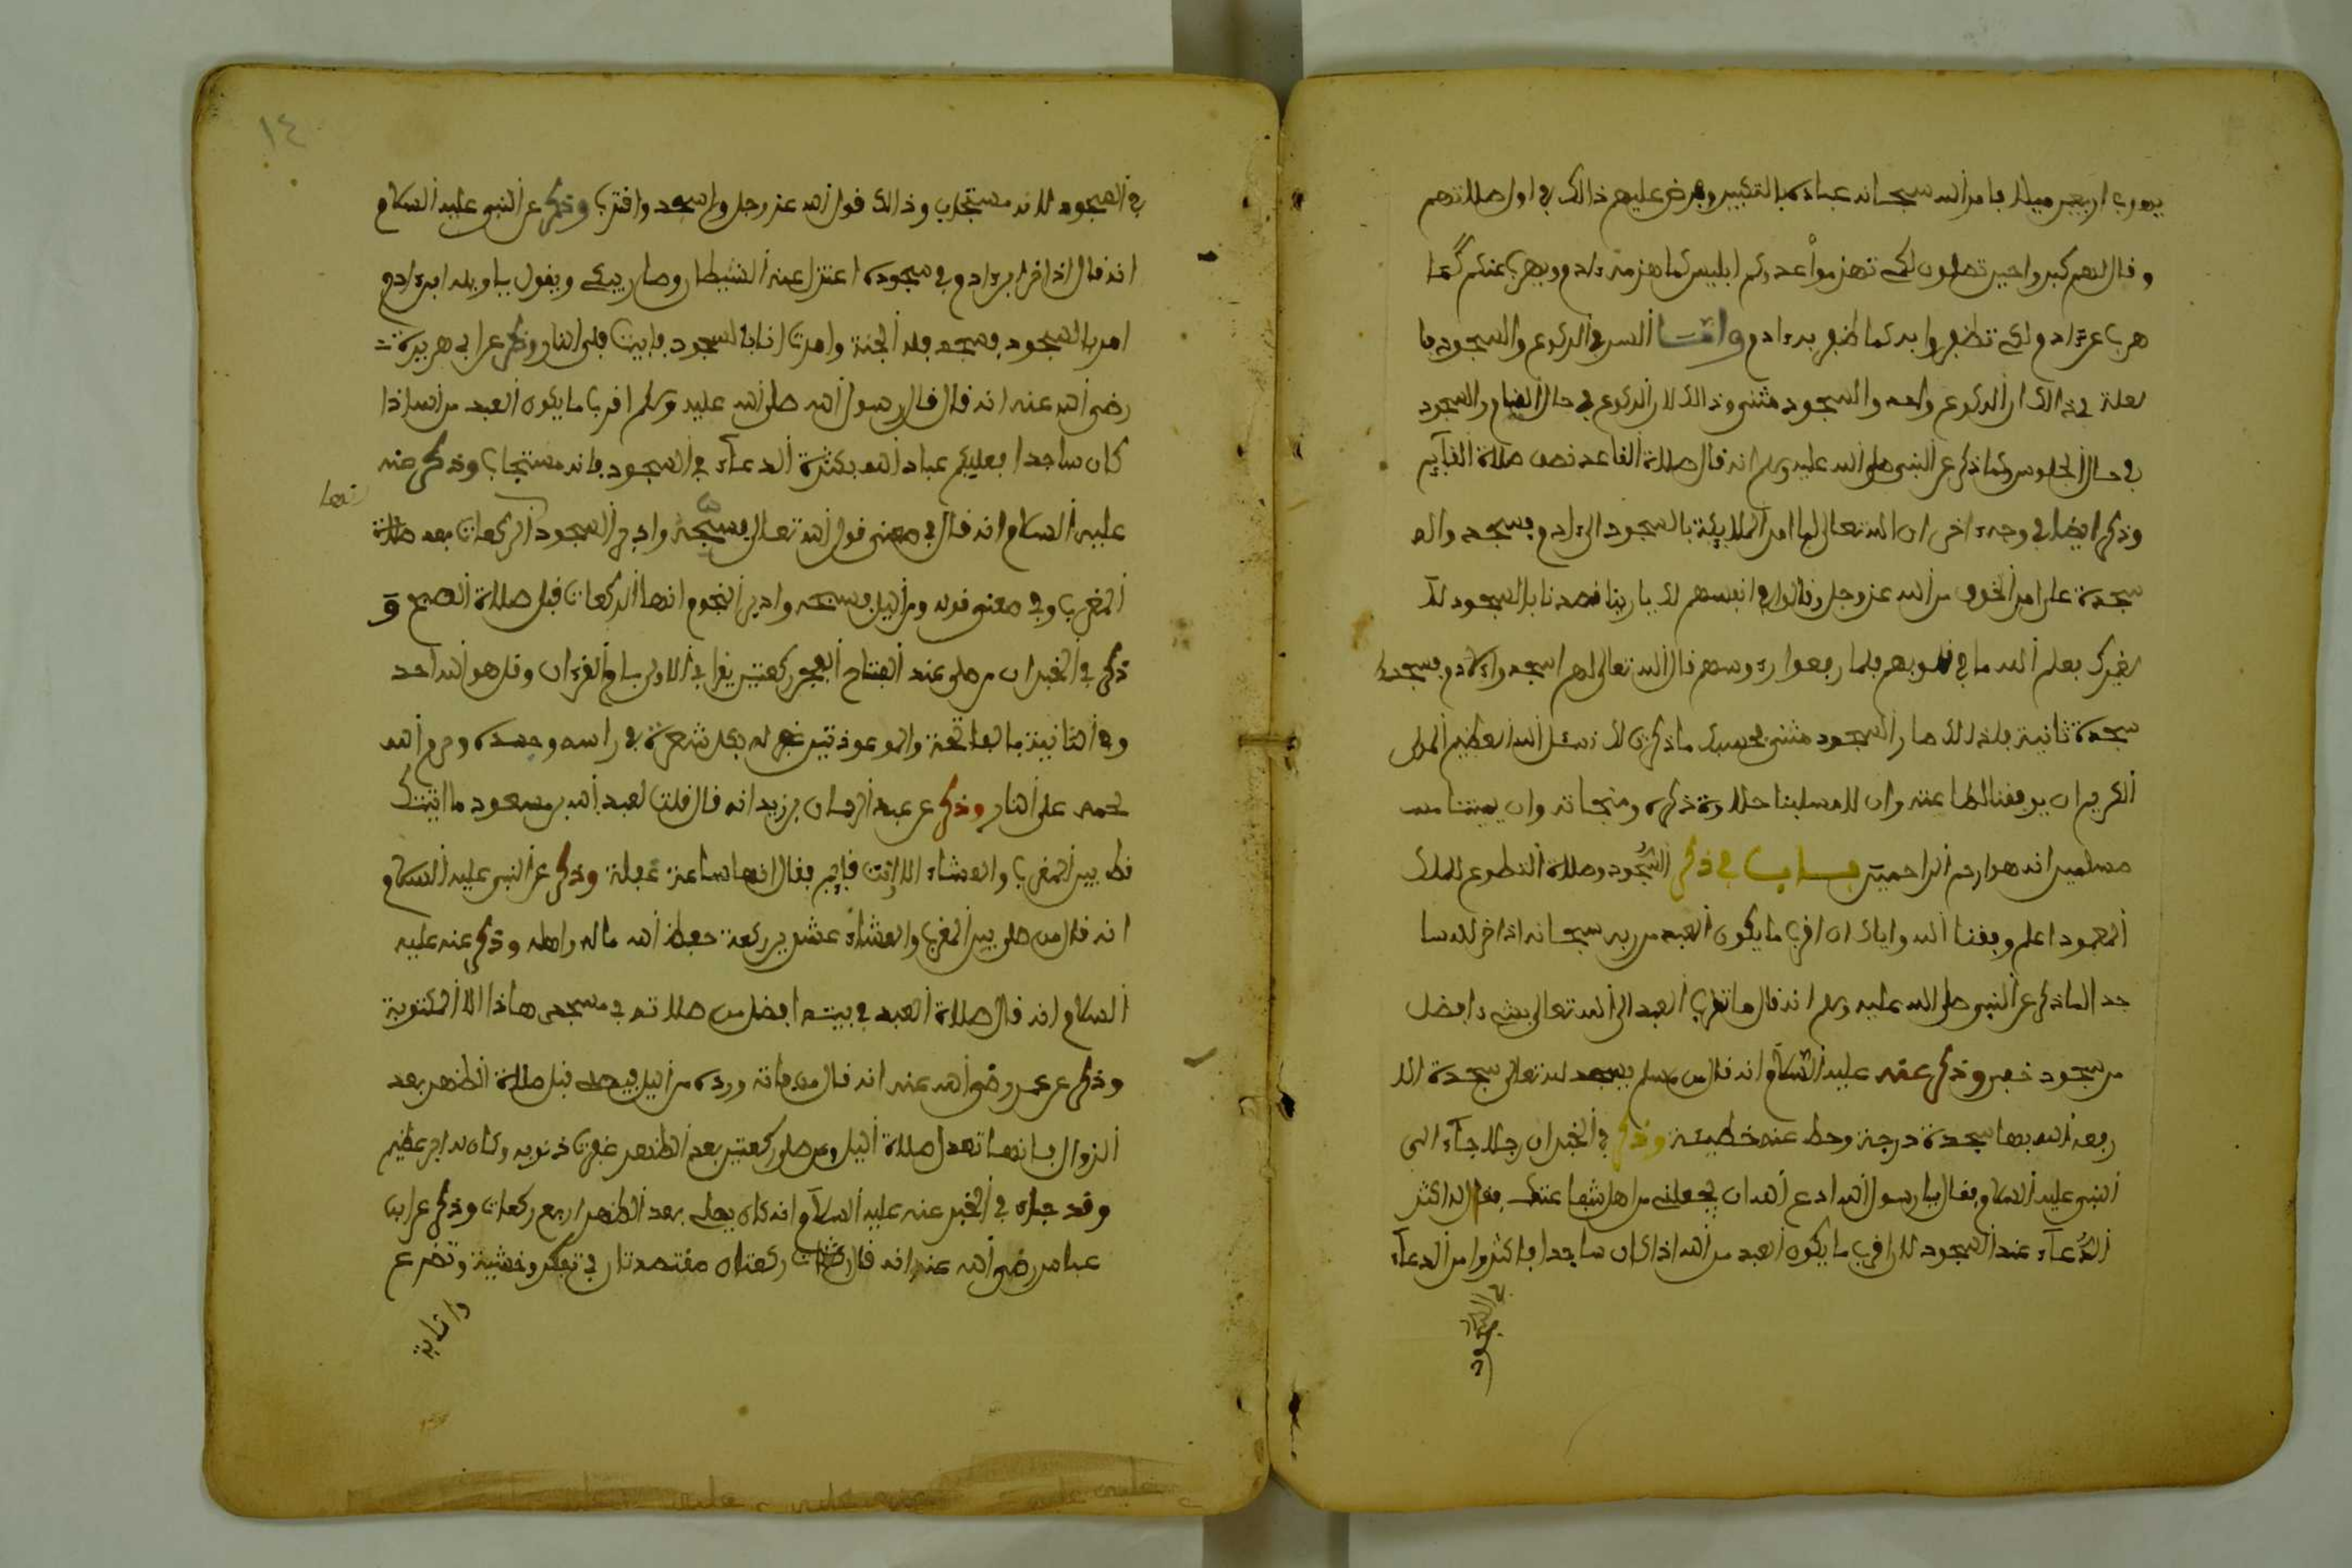 يهرب اربعين ميلا فامر الله سبحانه عباده بالتكبير وفرض عليهم ذالك في اول صلاتهم
وقال لهم كبروا حين تصلون لكي تهزموا عدوكم ابليس كما هزمه ءادم ويهرب عنكم كما
هرب عن ءادم ولكي تظفروا به كما ظفر به ءادم واما السر في الركوع والسجود فا
لعلة في ذالك ان الركوع واحد والسجود مثنى وذالك لان الركوع في حال القيام والسجود
في حال الجلوس وكما ذكر عن النبي صلى الله عليه وسلم انه قال صلاة القاعد نصف صلاة القآيم
وذكر ايضا في وجه ءاخر ان الله تعالى لما امر الملايكة بالسجود الى ءادم فسجدوا له
سجدة على امر الخوف من الله عز وجل وقالوا في انفسهم لك يا ربنا قصدنا بالسجود لا
لغيرك فعلم الله ما في قلوبهم فلما رفعوا رءوسهم قال الله تعالى لهم اسجدوا لادم فسجدوا
سجدة ثانية فلذلك صار السجود مثنى فحسبك ما ذكرت لك نسئل الله العظيم المولى
الكريم ان يوفقنا لطاعته وان لا يسلبنا حلاوة ذكره ومنجاته وان يميتنا
مسلمين انه هو ارحم الراحمين باب في ذكر السجود وصلاة التطوع للملك
المعبود اعلم وفقنا الله واياك ان اقرب ما يكون العبد من ربه سبحانه اذا خر لله سا
جدا لما ذكر عن النبي صلى الله عليه وسلم انه قال ما تقرب العبد الى الله تعالى بشيء افضل
من سجود خفي وذكر عنه عليه السلام انه قال من مسلم يسجد لله تعالى سجدة الا
رفعه الله بها سجدة درجة وحط عنه خطيئة وذكر في الخبر ان رجلا جآء الى
النبي عليه السلام فقال يا رسول الله ادع الله ان يجعلني من اهل شفاعتك فقال له اكثر
الدعآء عند السجود لان اقرب ما يكون العبد من الله اذا كان ساجدا فاكثروا من الدعآء
في السجود
١٤
في السجود لانه مستجاب وذالك قول الله عز وجل واسجد واقترب وذكر عن النبي عليه السلام
انه قال اذا قرا ابن ءادم في سجوده اعتزل عنه الشيطان وصار يبكي ويقول يا ويله ابن ءادم
امر بالسجود فسجد فله الجنة وامرت انا بالسجود فابيت فلي النار وذكر عن ابي هريرة
رضي الله عنه انه قال قال رسول الله صلى الله عليه وسلم اقرب ما يكون العبد من الله اذا
كان ساجدا فعليكم عباد الله بكثرة الدعآء في السجود فانه مستجاب وذكر عنه
عليه السلام انه قال في معنى قول الله تعالى فسبحه وادبر السجود الركعات بعد صلاة
المغرب وفي معنى قوله ومن اليل فسبحه وادبر النجوم انها الركعات قبل صلاة الصبح و
ذكر في الخبر ان من صلى عند افتتاح الفجر ركعتين يقرا في الاولى بام القرءان وقل هو الله احد
وفي الثانية بالفاتحة والمعوذتين غفر له بكل شعرة في راسه وجسده وحرم الله
لحمه على النار وذكر عن عبد الرحمان بن زيد انه قال قلت لعبد الله بن مسعود ما اتيتك
قط بين المغرب والعشاء الا وانت قايم فقال انها ساعة غفلة وذكر عن النبي عليه السلام
انه قال من صلى بين المغرب والعشاء عشرين ركعة حفظ الله ماله واهله وذكر عنه عليه
السلام انه قال صلاة العبد في بيته افضل من صلاته في مسجدي هاذا الا المكتوبة
وذكر عن عمر رضي الله عنه انه قال من فاته ورده من اليل فيصلي قبل صلاة الظهر بعد
الزوال فانها تعدل صلاة اليل ومن صلى ركعتين بعد الظهر غفرت ذنوبه وكان له اجر عظيم
وقد جاء في الخبر عنه عليه السلام انه كان يصلي بعد الظهر اربع ركعات وذكر عن ابن
عباس رضي الله عنه انه قال ركعتان مقتصدتان في تفكر وخشية وتضرع
وانابة